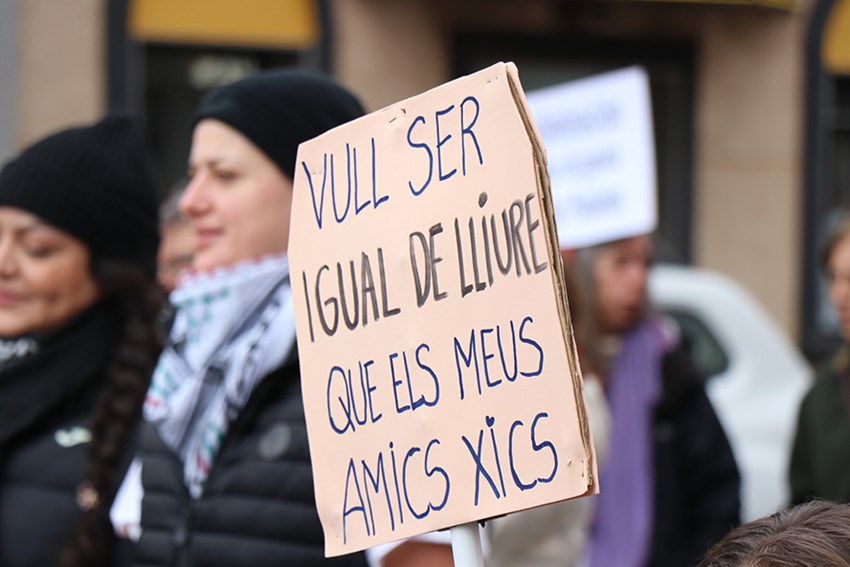 VULL SER
IGUAL DE LLIURE
QUE ELS MEUS
AMICS XICS